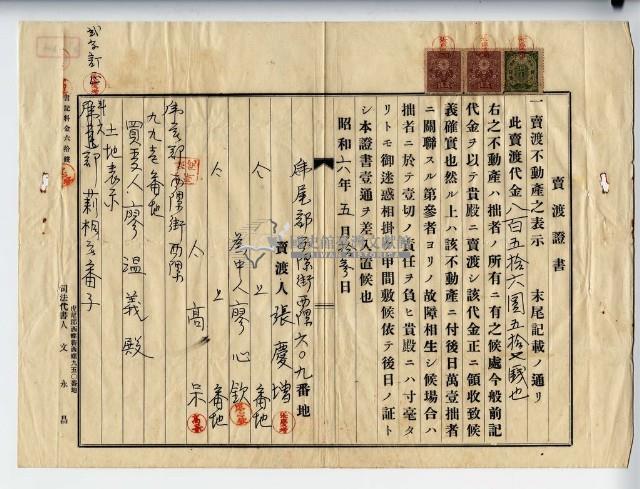 賣渡證書
一 賣渡不動產之表示 末尾記載ノ通リ
此賣渡代金八百五拾六圓五拾七錢也
右之不動產ハ拙者ノ所有ニ有之候處今般前記
代金ヲ以テ貴殿ニ賣渡シ該代金正ニ領收致候
義確實也然ル上ハ該不動產ニ付後日萬壹拙者
ニ關聯スル第參者ヨリノ故障相生シ候場合ハ
拙者ニ於テ壹切ノ責任ヲ負ヒ貴殿ニハ寸毫タ
リトモ御迷惑相掛ケ申間敷候依テ後日ノ証ト
シ本證書壹通ヲ差入置候也
昭和六年五月拾參日
虎尾郡西螺街西螺六〇九番地
賣渡人 張慶增
仝上 番地
為中人 廖心欽
仝上 番地
仝 高呆
虎尾郡西螺街西螺
九九壹番地
買受人 廖溫義殿
土地表示
莿桐
番子
書記料金六拾錢
虎尾郡西螺街西螺九五〇番地
司法代書人 文永昌